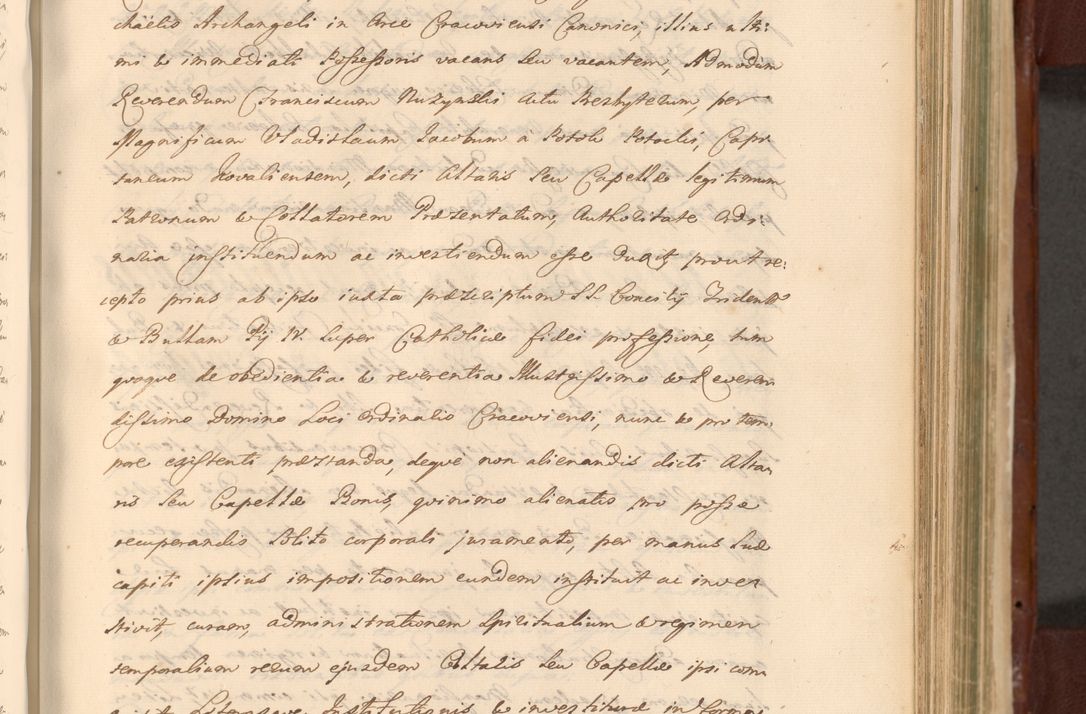 chäelis Archangeli in Arce Cracoviensi Canonici, illius ulti:
mi & immediati Possessoris vacans seu vacantem, Admodum
Reverendum Franciscum Ruzynski Actu Presbyterum, per
Magnificum Vladislaum Jacobum a Potok Potocki, Capi
taneum Kovaliensem, dicti Altaris seu Capellæ legitimum
Patronum & Collatorem Præsentatum, Authoritate Ordi:
naria instituendum ac investiendum esse duxit, prout re:
cepto prius ab ipso iuxta præscriptum SS. Concilij Trident.
& Bullam Pij IV. super Catholicæ fidei professione, tum
quoque de obedientia & reverentia Illustrissimo & Reveren
dissimo Domino Loci Ordinario Cracoviensi, nunc & pro tem
pore existenti præstanda, deque non alienandis dicti Alta
ris seu Capellæ Bonis, quinimo alienatis pro posse
recuperandis solito corporali juramento, per manus suæ
capiti ipsius impositionem eundem instituit ac inves
tivit, curam, administrationem spiritualium & regimen
temporalium rerum ejusdem Altaris seu Capellæ ipsi com
Institutionis & investituræ in forma